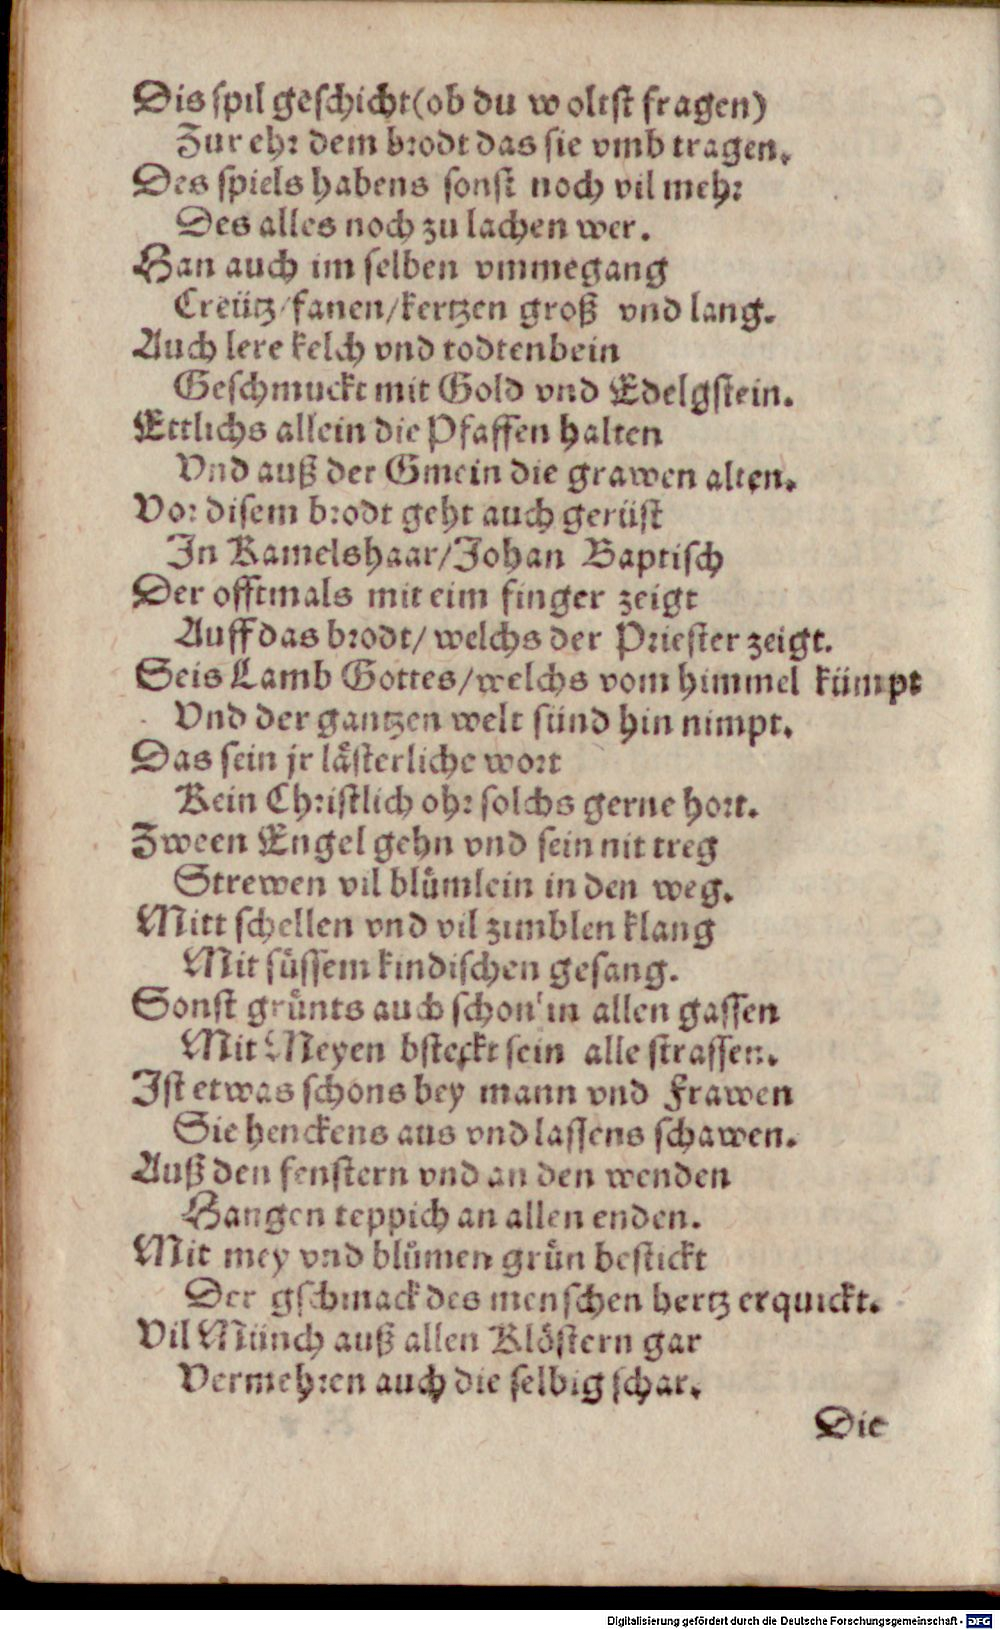 Dis spil geschicht (ob du woltst fragen)
Zur ehr dem brodt das sie vmb tragen.
Des spiels habens sonst noch vil mehr
Des alles noch zu lachen wer.
Han auch im selben vmmegang
Creütz/fanen/kertzen groß vnd lang.
Auch lere kelch vnd todtenbein
Geschmuckt mit Gold vnd Edelgstein.
Ettlichs allein die Pfaffen halten
Vnd auß der Gmein die grawen alten.
Vor disem brodt geht auch gerüst
In Kamelshaar/Johan Baptisch
Der offtmals mit eim finger zeigt
Auff das brodt/ welchs der Priester zeigt.
Seis Lamb Gottes/welchs vom himmel kümpt
Vnd der gantzen welt sünd hin nimpt.
Das sein jr lästerliche wort
Kein Christlich ohr solchs gerne hort.
Zween Engel gehn vnd sein nit treg
Strewen vil blümlein in den weg.
Mitt schellen vnd vil zimblen klang
Mit süssem kindischen gesang.
Sonst grünts auch schon in allen gassen
Mit Meyen bsteckt sein alle strassen.
Ist etwas schons bey mann vnd Frawen
Sie henckens aus vnd lassens schawen.
Auß den fenstern vnd an den wenden
Hangen teppich an allen enden.
Mit mey vnd blůmen grün bestickt
Der gschmack des menschen hertz erquickt.
Vil Münch auß allen Klöstern gar
Vermehren auch die selbig schar.
Die
Digitalisierung gefördert durch die Deutsche Forschungsgemeinschaft - DFG